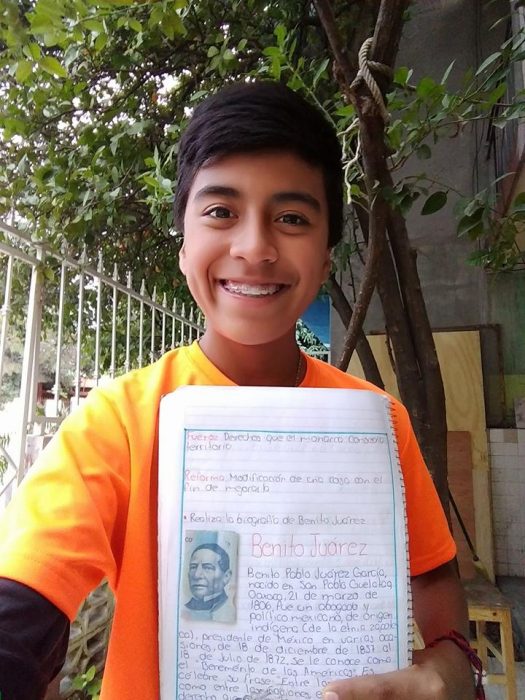 Fueros: Derechos que el monarca
territorio
Reforma: Modificación de una cosa con el
fin de mejorarla
• Realiza la biografía de Benito Juárez
Benito Juárez
Benito Pablo Juárez García,
nacido en San Pablo Guelatao,
Oaxaca, 21 de marzo de
1806, Fue un abogado y
político mexicano, de origen
indígena (de la etnia zapote
ca), presidente de México en varias oca
siones, de 18 de diciembre de 1857 al
18 de Julio de 1872. Se le conoce como
el "Benemérito de las Américas". Es
célebre su frase: Entre los
como entre las naciones
derecho